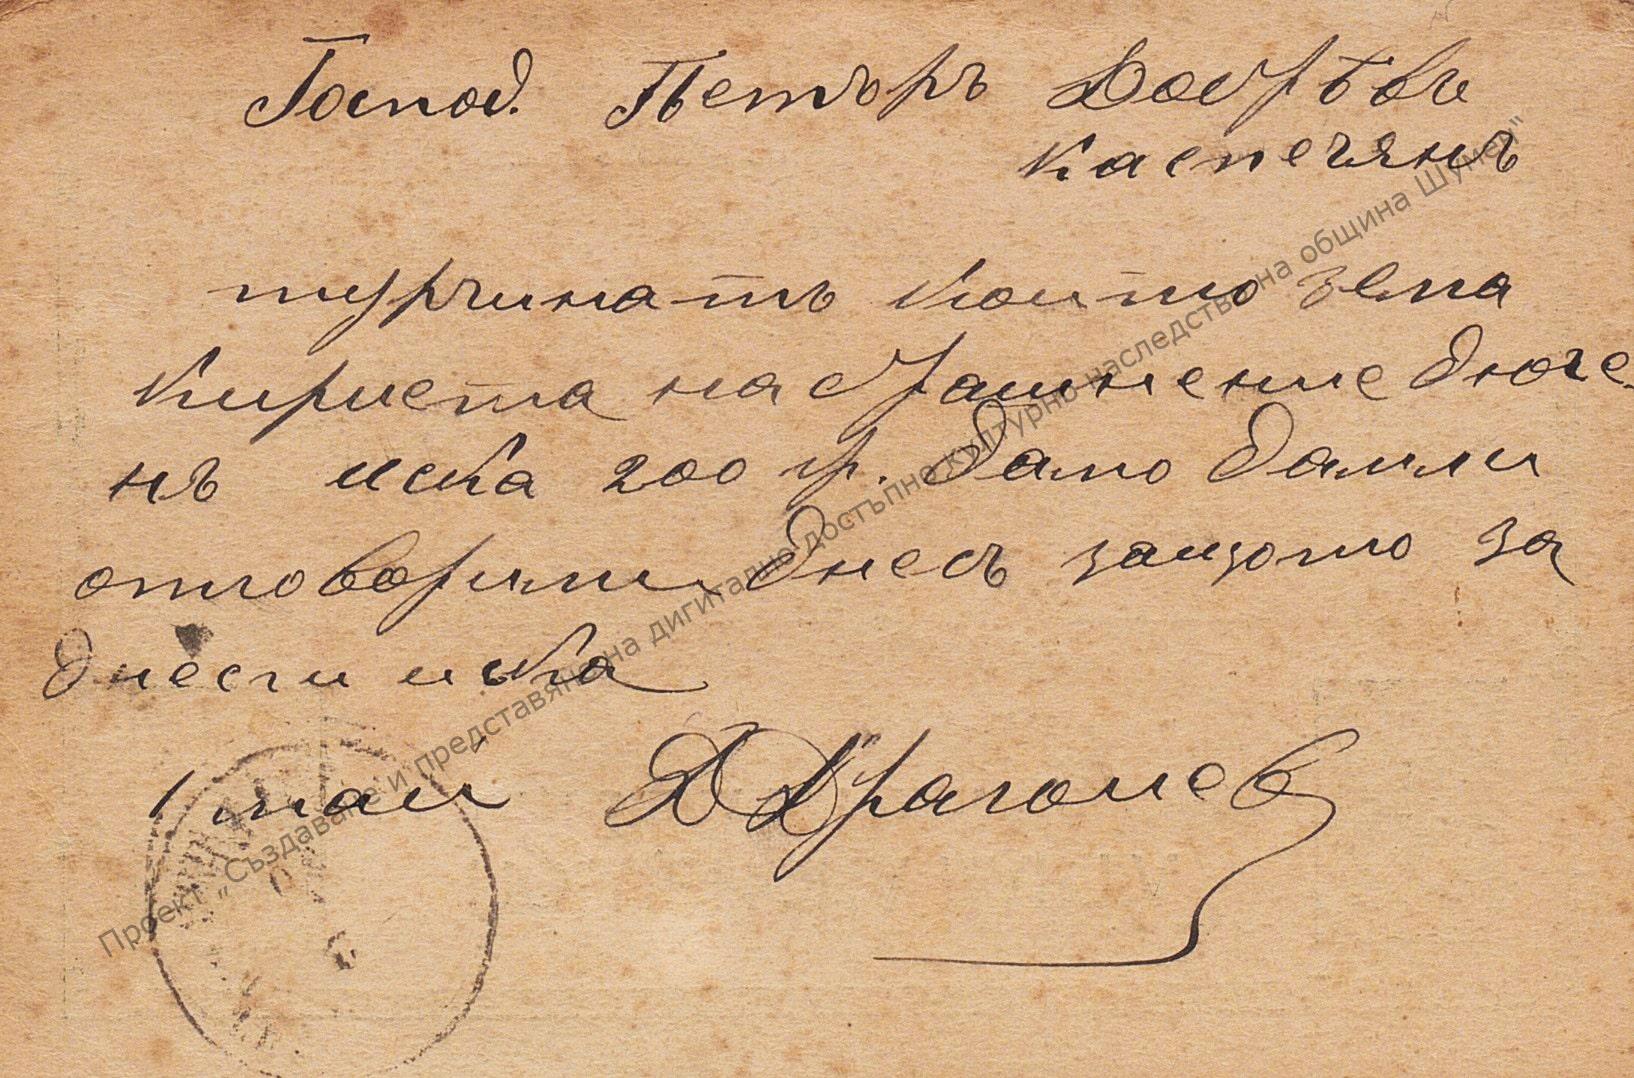 Господ. Петъръ Добрѣвъ
Каспечянъ
турчинатъ които зема
Кириета на сѫашнение дюге
нъ иска 200 гр. дамо дамли
отговорими днесъ защото за
днески иска
1 маи Д Драгоиев
Проект "Създаване и представяне на дигитално достъпно културно наследство на община Шумен"